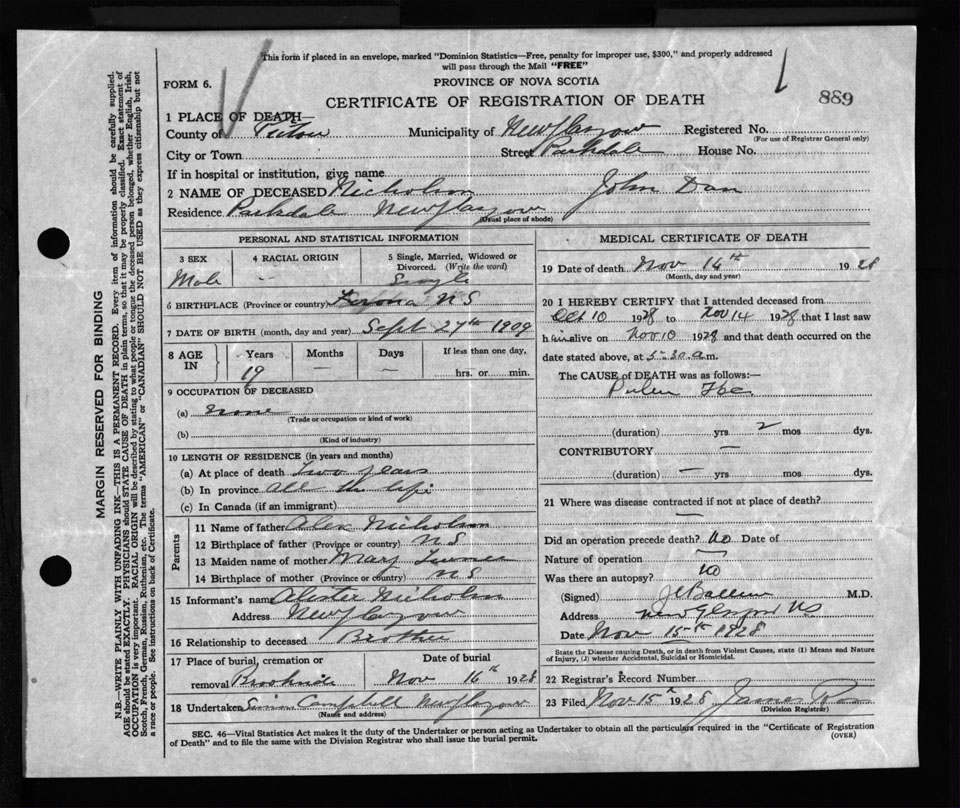 This form if placed in an envelope, marked "Dominion Statistics—Free, penalty for improper use, $300," and properly addressed
will pass through the Mail "FREE"
FORM 6.
PROVINCE OF NOVA SCOTIA
CERTIFICATE OF REGISTRATION OF DEATH
889
1 PLACE OF DEATH
County of Pictou Municipality of New Glasgow Registered No.
(For use of Registrar General only)
City or Town Street Parkdale House No.
If in hospital or institution, give name
2 NAME OF DECEASED Nicholson John Dan
Residence Parkdale New Glasgow
(Usual place of abode)
PERSONAL AND STATISTICAL INFORMATION
3 SEX 4 RACIAL ORIGIN 5 Single, Married, Widowed or
Divorced. (Write the word)
Male — Single
6 BIRTHPLACE (Province or country) Ferrona N S
7 DATE OF BIRTH (month, day and year) Sept 27th 1909
8 AGE IN Years Months Days If less than one day,
19 — — hrs. or min.
9 OCCUPATION OF DECEASED
(a) none
(Trade or occupation or kind of work)
(b)
(Kind of industry)
10 LENGTH OF RESIDENCE (in years and months)
(a) At place of death two years
(b) In province all his life
(c) In Canada (if an immigrant)
Parents
11 Name of father Alex Nicholson
12 Birthplace of father (Province or country) N S
13 Maiden name of mother Mary
14 Birthplace of mother (Province or country) N S
15 Informant's name Nicholson
Address New Glasgow
16 Relationship to deceased Brother
17 Place of burial, cremation or Date of burial
removal Brookside Nov 16th 1928
18 Undertaker Campbell New Glasgow
(Name and address)
MEDICAL CERTIFICATE OF DEATH
19 Date of death Nov 14th 1928
(Month, day and year)
20 I HEREBY CERTIFY that I attended deceased from
Oct 10 1928 to Nov 14 1928 that I last saw
him alive on Nov 10 1928 and that death occurred on the
date stated above, at 5-30 a.m.
The CAUSE of DEATH was as follows:—
Pulm Tbc.
(duration) yrs 2 mos dys.
CONTRIBUTORY —
(duration) — yrs mos dys.
21 Where was disease contracted if not at place of death?
—
Did an operation precede death? No Date of
Nature of operation —
Was there an autopsy? no
(Signed) M.D.
Address New Glasgow N S
Date Nov 15th 1928
State the Disease causing Death, or in death from Violent Causes, state (1) Means and Nature
of Injury, (2) whether Accidental, Suicidal or Homicidal.
22 Registrar's Record Number
23 Filed Nov 15th 1928 James
(Division Registrar)
SEC. 46—Vital Statistics Act makes it the duty of the Undertaker or person acting as Undertaker to obtain all the particulars required in the "Certificate of Registration
of Death" and to file the same with the Division Registrar who shall issue the burial permit.
(OVER)
MARGIN RESERVED FOR BINDING
N.B.—WRITE PLAINLY WITH UNFADING INK—THIS IS A PERMANENT RECORD. Every item of information should be carefully supplied.
AGE should be stated EXACTLY. PHYSICIANS should STATE CAUSE OF DEATH in plain terms, so that it may be properly classified. Exact statement of
OCCUPATION is very important. RACIAL ORIGIN will be described by stating to what people or tongue the deceased person belonged, whether English, Irish,
Scotch, French, German, Russian, Ruthenian, etc. The terms "AMERICAN" or "CANADIAN" SHOULD NOT BE USED as they express citizenship but not
a race or people. See instructions on back of Certificate.